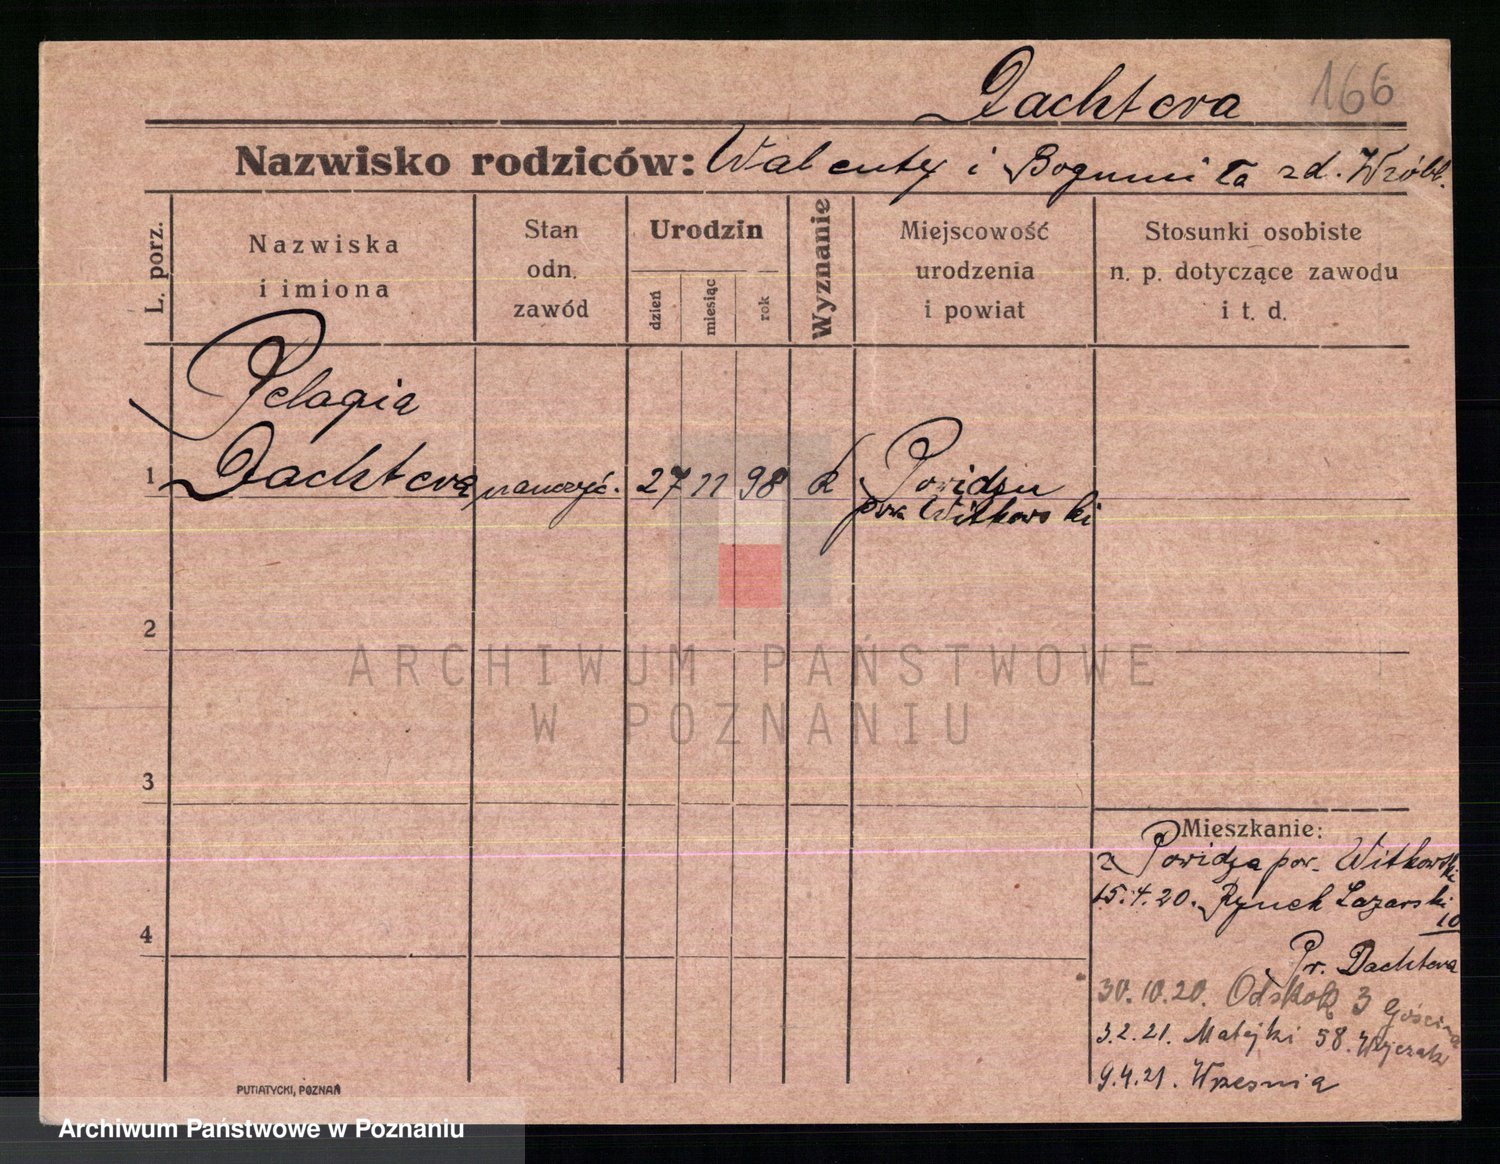 Dachtera 166
Nazwisko rodziców: Walenty i Bogumiła zd. Wróbl.
L. porz.
Nazwiska
i imiona
Stan
odn.
zawód
Urodzin
dzień
miesiąc
rok
Wyznanie
Miejscowość
urodzenia
i powiat
Stosunki osobiste
n. p. dotyczące zawodu
i t. d.
Pelagia
1 Dachtera nauczyć. 27 11 98 k Powidzu
pow Witkowski
2
ARCHIWUM PAŃSTWOWE
W POZNANIU
3
Mieszkanie:
z Powidza pow. Witkowski
15.4.20. Rynek Łazarski
10
4
Pr. Dachtera
30.10.20. 3 Gościna
3.2.21. Matejki 58.
9.4.21. Września
PUTIATYCKI, POZNAŃ
Archiwum Państwowe w Poznaniu